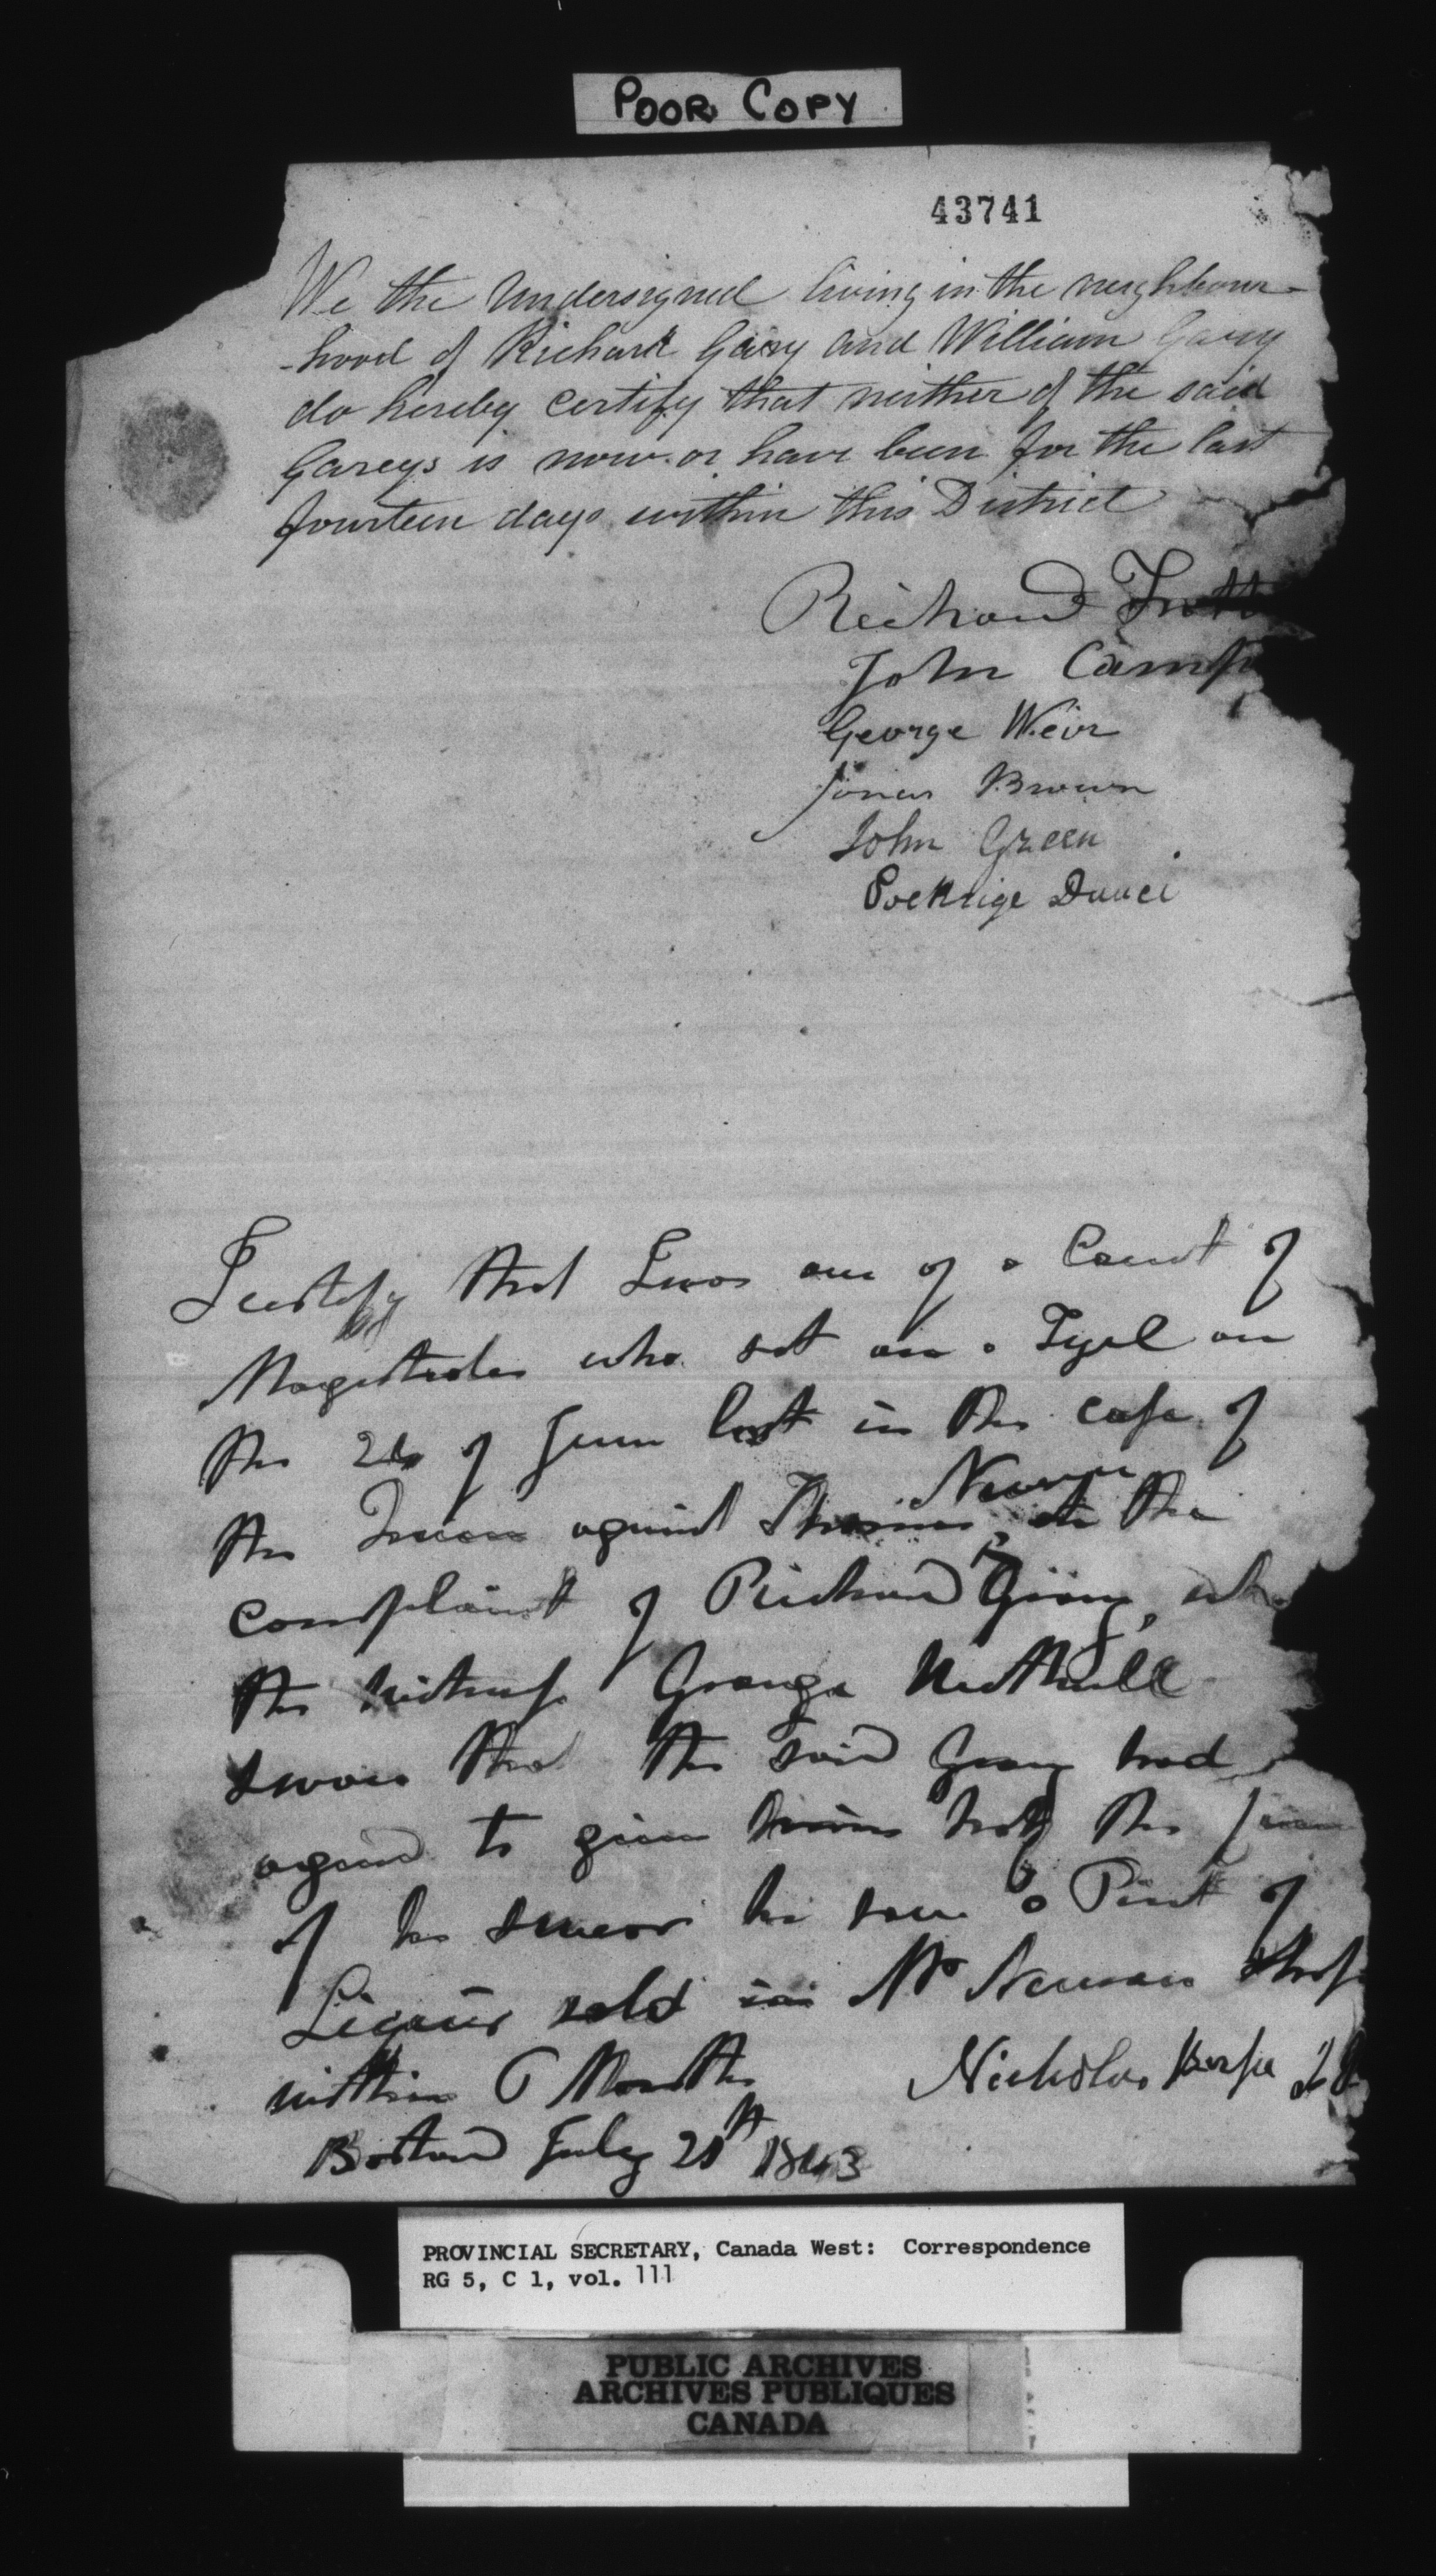 POOR COPY
43741
We the Undersigned living in the neighbour-
-hood of Richard Garey and William Garey
do hereby Certify that neither of the said
Gareys is now or have been for the last
fourteen days within this District
Richard
John Camp
George Weir
Brown
John Green
I certify that I was one of a Court of
Magistrates who sat on a Tryel on
the of June last in the case of
the Queen against Thomas Newman at the
complaint of Richard who
the witness George
swore that the said had
agreed to give him half the
of he swear he saw a Pint of
Liquor sold in Mr Newman Shop
within 6 Months Nicholas
July 21st 1843
PROVINCIAL SECRETARY, Canada West: Correspondence
RG 5, C 1, vol. 111
PUBLIC ARCHIVES
ARCHIVES PUBLIQUES
CANADA